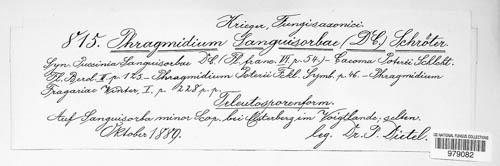 Krieger, Fungi saxonici.
815. Phragmidium Sanguisorbae (DC) Schröter.
Syn. Puccinia Sanguisorbae DC (Fl. franc. VI. p. 54.) – Caeoma Poterii Schlcht.
Fl. Berol. II. p. 123 – Phragmidium Poterii Fckl. Symb. p. 46 – Phragmidium
Fragariae Winter, I. p. 228 p. p.
Teleutosporenform.
Auf Sanguisorba minor Scop. bei Elsterberg im Voigtlande, selten.
Oktober 1889. leg. Dr. P. Dietel.
US NATIONAL FUNGUS COLLECTIONS
979082